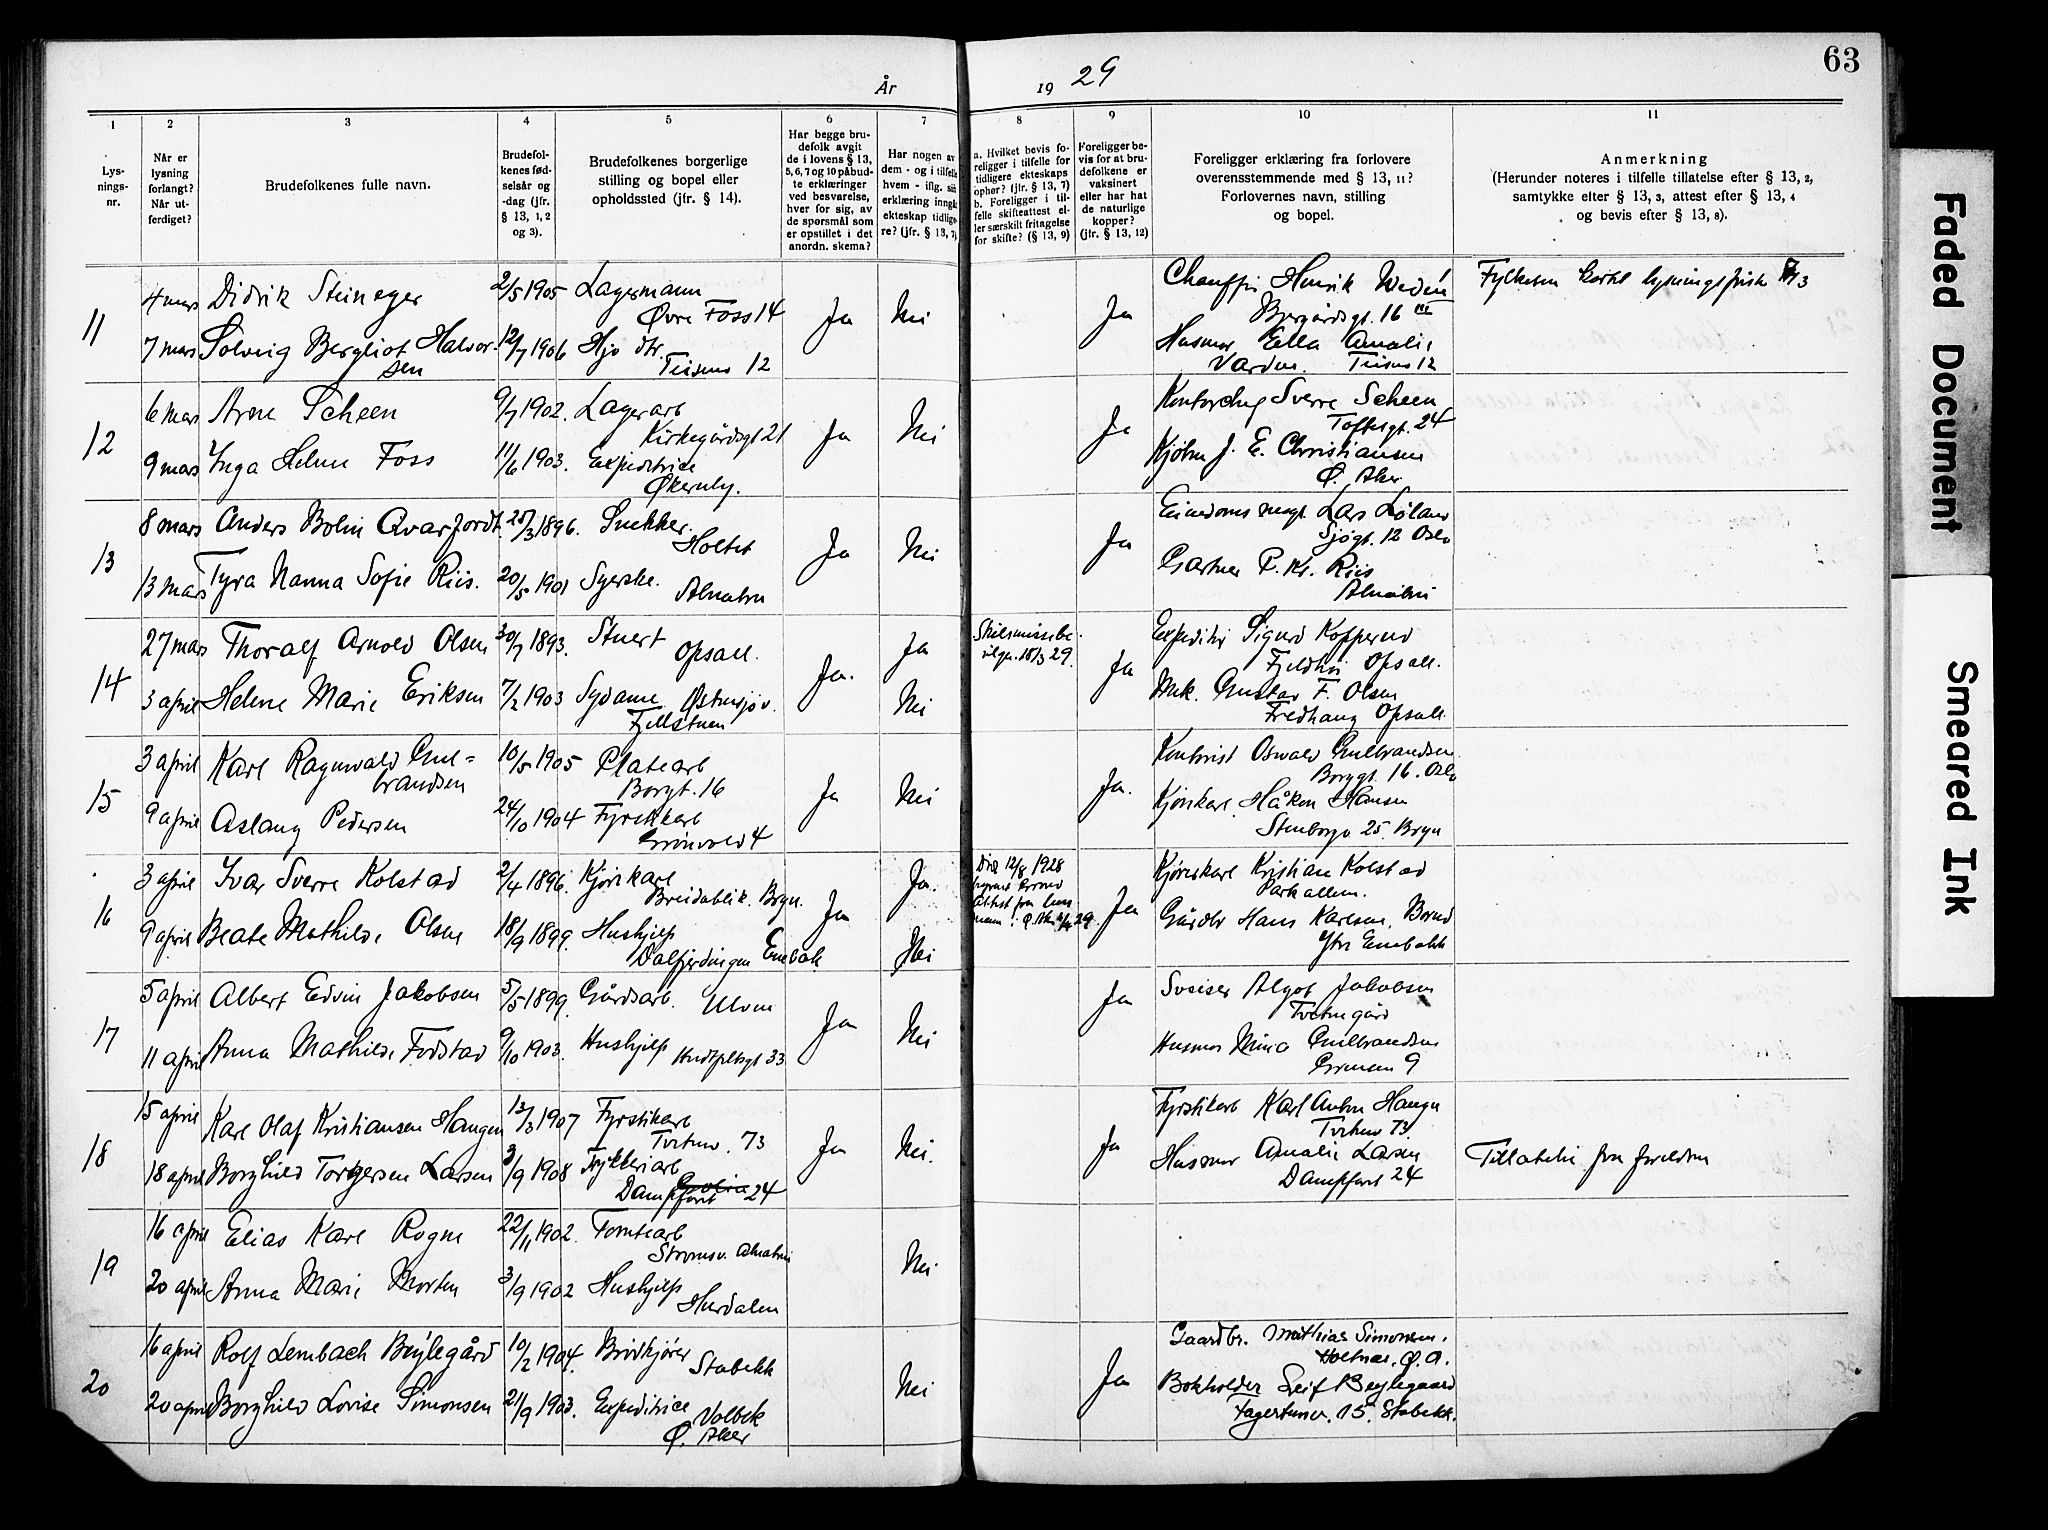 År 1929
63
1
Lys-
nings-
nr.
2
Når er
lysning
forlangt?
Når ut-
ferdiget?
3
Brudefolkenes fulle navn.
4
Brudefol-
kenes fød-
selsår og
-dag (jfr.
§ 13, 1, 2
og 3).
5
Brudefolkenes borgerlige
stilling og bopel eller
opholdssted (jfr. § 14).
6
Har begge bru-
defolk avgit
de i lovens § 13,
5, 6, 7 og 10 påbud-
te erklæringer
ved besvarelse,
hver for sig, av
de spørsmål som
er opstillet i det
anordn. skema?
7
Har nogen av
dem - og i tilfelle
hvem - iflg. sin
erklæring inngå
ekteskap tidlige-
re? (jfr. § 13, 7)
8
a. Hvilket bevis fo-
religger i tilfelle for
tidligere ekteskaps
ophør? (jfr. § 13, 7)
b. Foreligger i til-
felle skifteattest el-
ler særskilt fritagelse
for skifte? (§ 13, 9)
9
Foreligger be-
vis for at bru-
defolkene er
vaksinert
eller har hat
de naturlige
kopper?
(jfr. § 13, 12)
10
Foreligger erklæring fra forlovere
overensstemmende med § 13, 11?
Forlovernes navn, stilling
og bopel.
11
Anmerkning
(Herunder noteres i tilfelle tillatelse efter § 13, 2,
samtykke efter § 13, 3, attest efter § 13, 4
og bevis efter § 13, 8).
11
4 mars Didrik Steineger 2/5 1905 Lagermann
Øvre Foss 14
7 mars Solveig Bergliot Halvor-
sen 12/7 1906 Hjv dtr.
Teisens 12
Ja Nei Ja
Chauffør Henrik
16 III
Husmor Ella Amalie
Varden. Teisens 12
Fylketsm lysningsfrist
12
6 mars Arne Scheen 9/7 1902. Lagerarb
Kirkegårdsgt 21
9 mars Inga Helene Foss 11/6 1903. Expeditrice
Økernly.
Ja Nei Ja
Kontorchef Sverre Scheen
Toftesgt. 24
Kjølm J. E. Christiansen
Ø. Aker
13
8 mars Anders Bolin Qvarfordt. 25/3 1896. Snekker.
Holtet
13 mars Tyra Nanna Sofie Riis. 20/5 1901 Syerske.
Alnabru
Ja Nei Ja
Lars Løland
Sjøgt. 12 Oslo
Gartner P. Kr. Riis
Alnabru
14
27 mars Thoralf Arnold Olsen 30/7 1893. Stuert
Opsall.
3 april Helene Marie Eriksen 7/2 1903 Sydame Østensjøv.
Fjellstuen
Ja. Ja
Nei
Skilsmissebe-
vilgn. 18/3 29.
Ja
Expeditør Sigurd Kopperud
Fjeldhøi Opsall.
Mek. Gustav F. Olsen
Fredhaug Opsall
15
3 april Karl Ragnvald Gul=
brandsen 10/5 1905 Platearb
Borgt. 16
9 april Aslaug Pedersen 24/10 1904 Fyrstikkarb
Grønvold 4
Ja Nei Ja.
Kontorist Oswald Gulbrandsen
Borggt. 16. Oslo
Kjørekarl Håkon Hansen
Stenborgv 25. Bryn
16
3 april Ivar Sverre Kolstad 2/4 1896. Kjørekarl
Breidablik. Bryn.
9 april Beate Mathilde Olsen 18/9 1899. Hushjelp
Dalfjerdingen Enebak
Ja Ja.
Nei
Død 12/8 1928
Attest fra lens
mann i Ø. Aker 29.
Ja
Kjørekarl Kristian Kolstad
Parkalleen.
Gårdbr Hans Karlsen, Borud
Ytre Enebakk
17
5 april Albert Edvin Jakobsen 5/5 1899. Gårdsarb.
Ulven
11 april Anna Mathilde Fodstad 9/10 1903. Hushjelp
Huitfeltsgt 33
Ja Nei Ja
Sveiser Algot Jakobsen
Tveten gård
Husmor Mina Gulbrandsen
9
18
15 april Karl Olaf Kristiansen Haugen 13/3 1907 Fyrstikarb
Tvetenv. 73
18 april Borghild Torgersen Larsen 3/9 1908 Trykkeriarb
Dampfarit 24
Ja Nei. Ja
Fyrstikarb Karl Anton Haugen
Tvetenv 73.
Husmor Amalie Larsen
Dampfarit 24
Tillatelse fra foreldre
19
16 april Elias Karl Rogne 22/11 1902. Tomtearb
Strømsv. Alnabru
20 april Anna Marie Morten 3/9 1902 Hushjelp
Hurdalen
Nei
20
16 april Rolf Lembach Beylegård 10/2 1904. Brødkjører
Stabekk
20 april Borghild Lovise Simonsen 21/9 1903. Expeditrice
Volbek
Ø. Aker
Nei Ja
Gaardbr. Mathias Simonsen.
Holtnes. Ø. A.
Bokholder Leif Beylegaard
Fagertunv. 15. Stabekk.
Faded Document
Smeared Ink